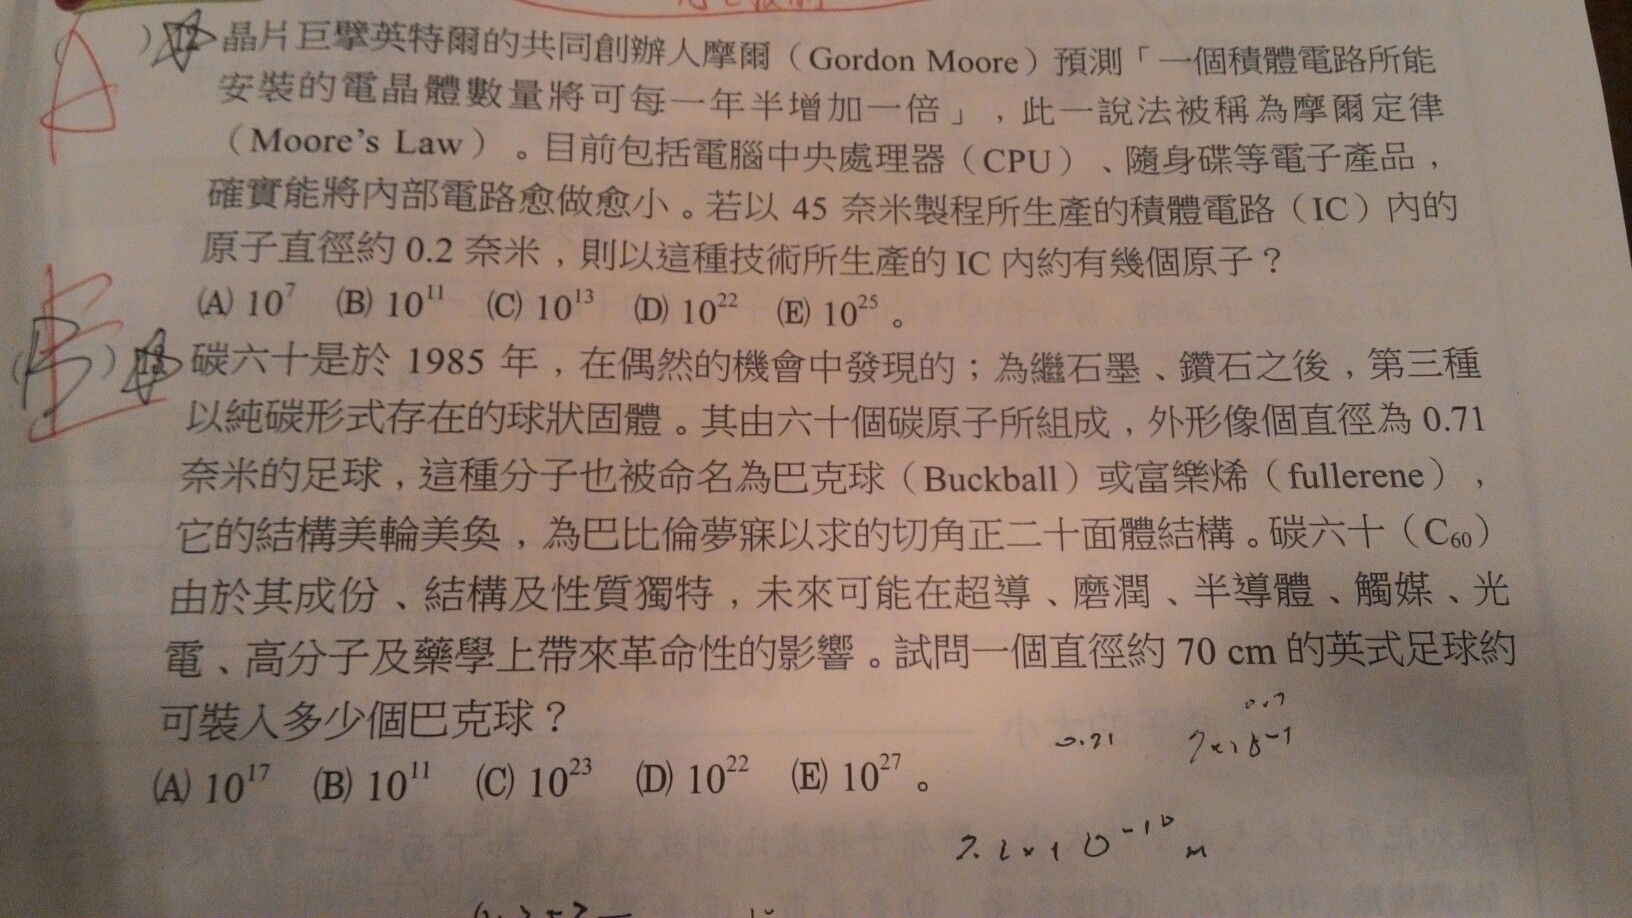 A
) 12 晶片巨擘英特爾的共同創辦人摩爾（Gordon Moore）預測「一個積體電路所能
安裝的電晶體數量將可每一年半增加一倍」，此一說法被稱為摩爾定律
（Moore's Law）。目前包括電腦中央處理器（CPU）、隨身碟等電子產品，
確實能將內部電路愈做愈小。若以 45 奈米製程所生產的積體電路（IC）內的
原子直徑約 0.2 奈米，則以這種技術所生產的 IC 內約有幾個原子？
(A) 10⁷ (B) 10¹¹ (C) 10¹³ (D) 10²² (E) 10²⁵。
( B ) 13 碳六十是於 1985 年，在偶然的機會中發現的；為繼石墨、鑽石之後，第三種
E
以純碳形式存在的球狀固體。其由六十個碳原子所組成，外形像個直徑為 0.71
奈米的足球，這種分子也被命名為巴克球（Buckball）或富樂烯（fullerene），
它的結構美輪美奐，為巴比倫夢寐以求的切角正二十面體結構。碳六十（C₆₀）
由於其成份、結構及性質獨特，未來可能在超導、磨潤、半導體、觸媒、光
電、高分子及藥學上帶來革命性的影響。試問一個直徑約 70 cm 的英式足球約
可裝入多少個巴克球？
0.7
0.71
(A) 10¹⁷ (B) 10¹¹ (C) 10²³ (D) 10²² (E) 10²⁷。